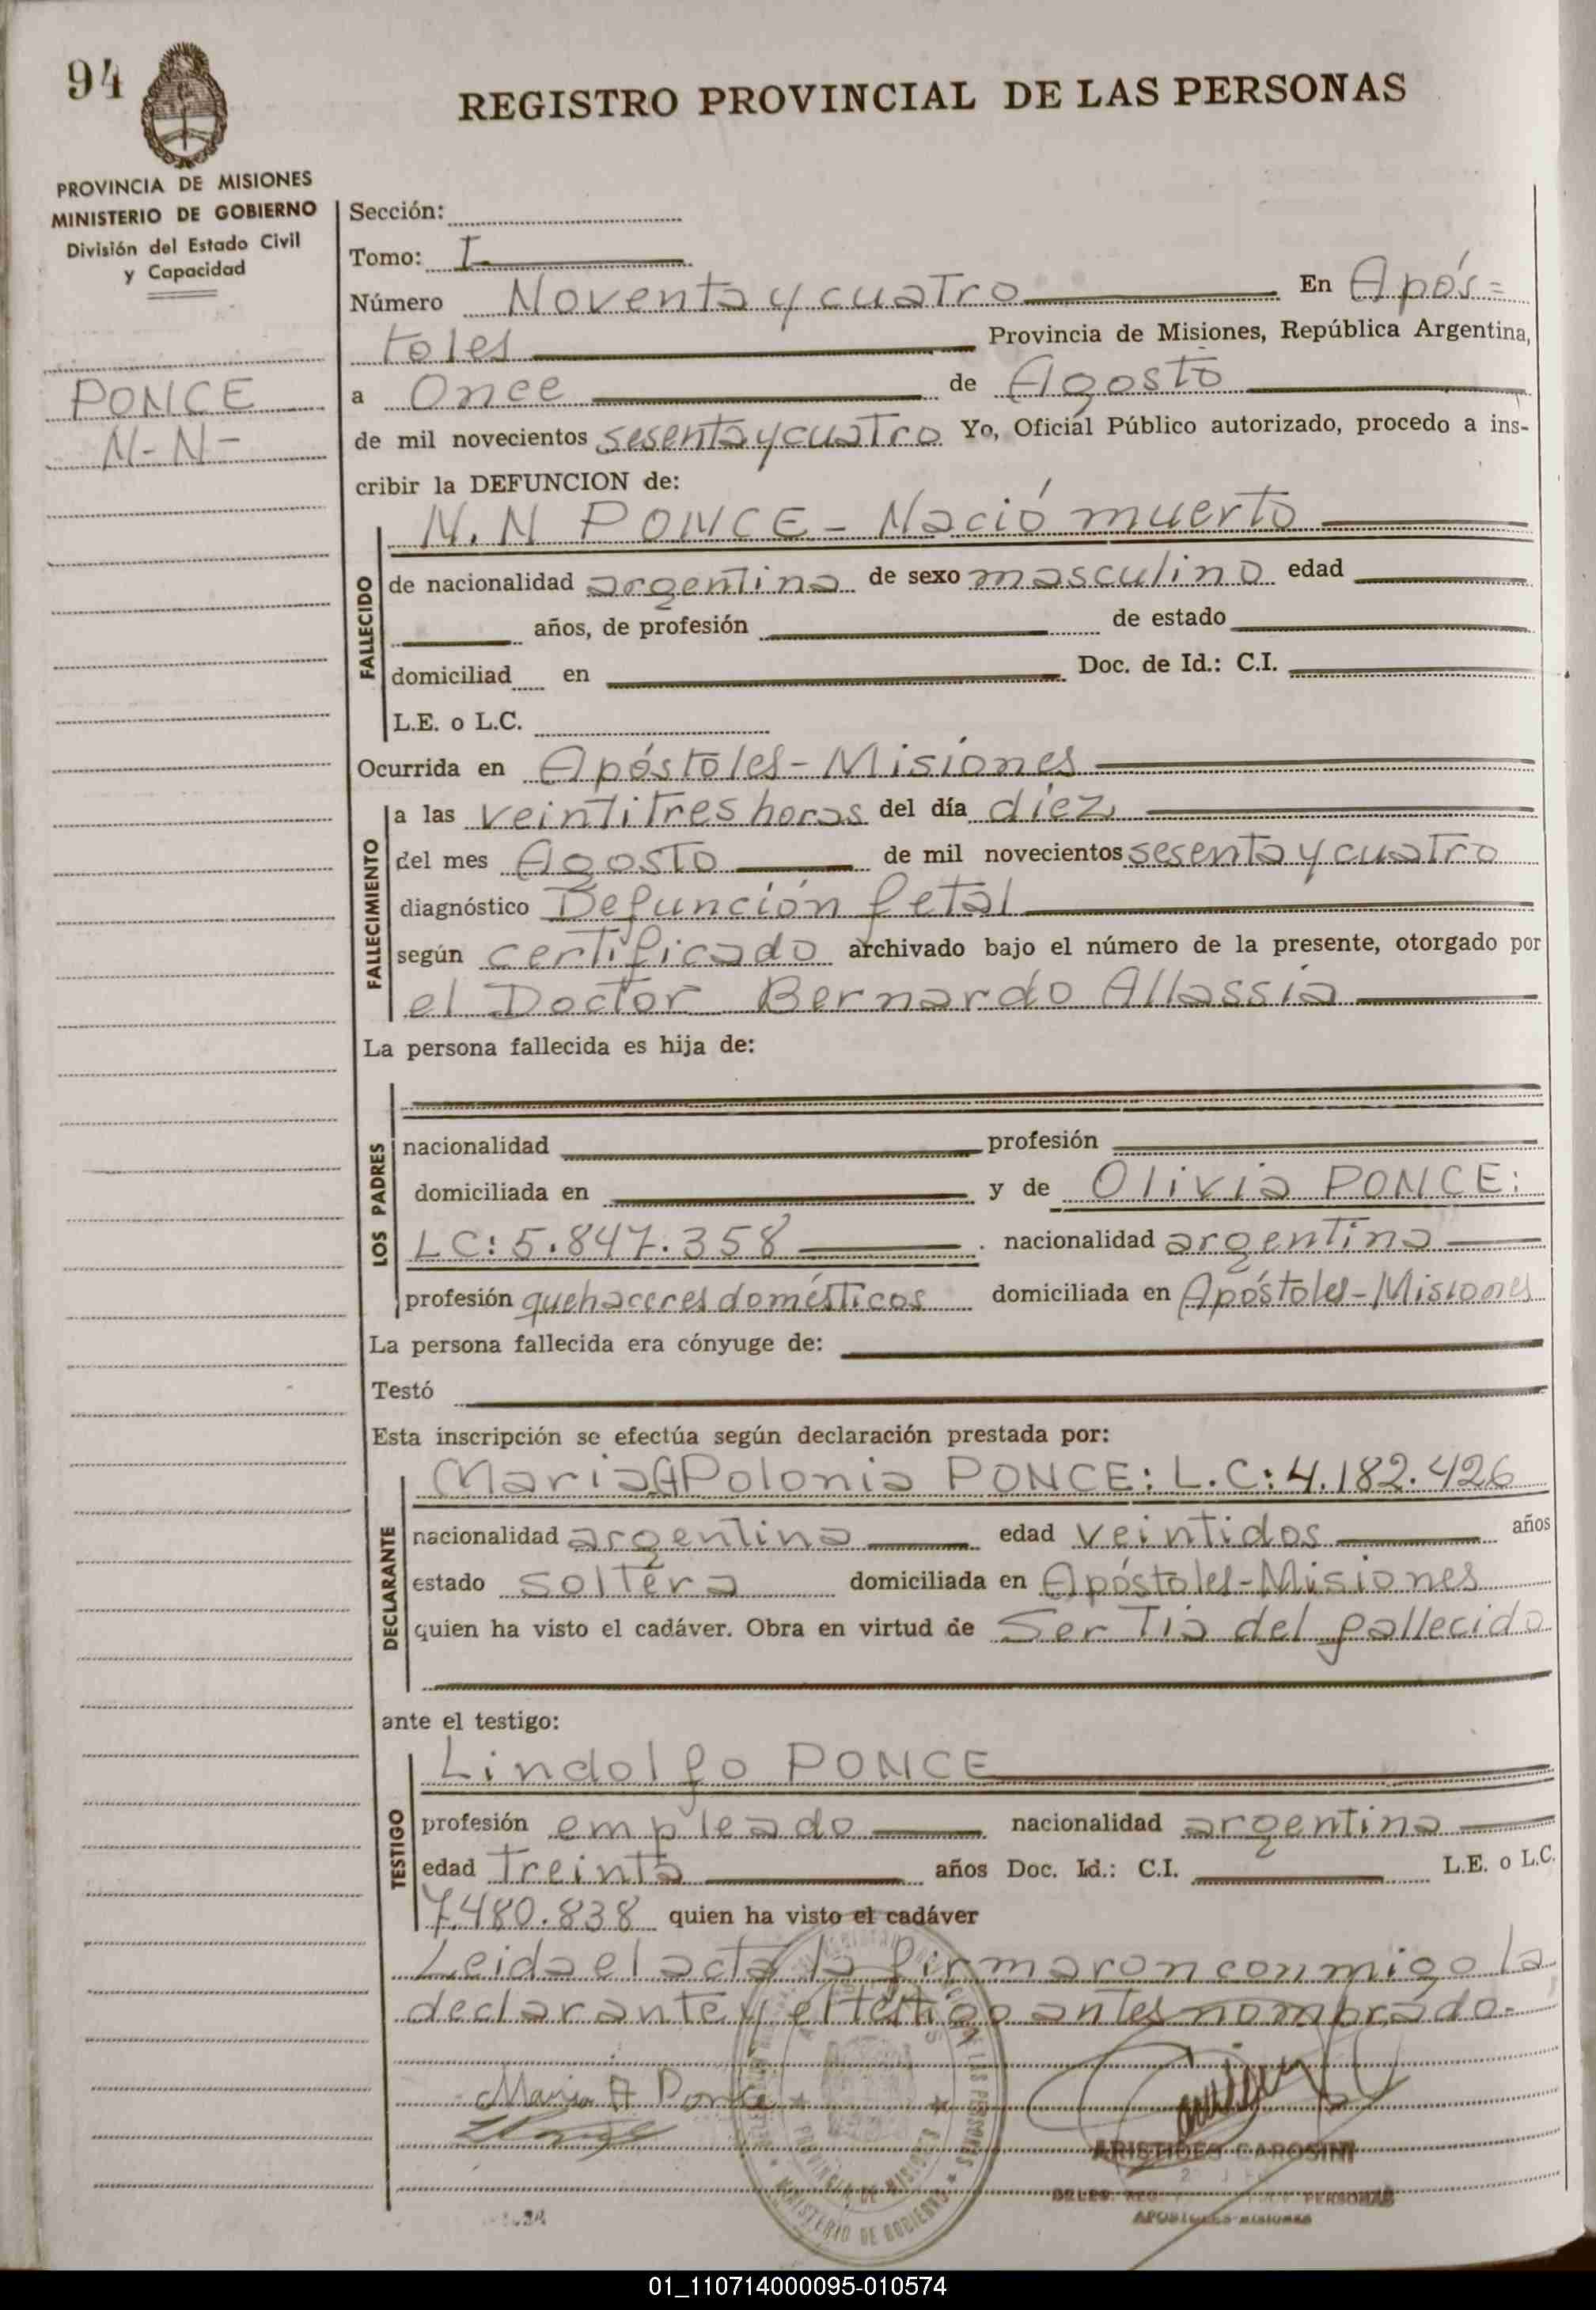 94
REGISTRO PROVINCIAL DE LAS PERSONAS
PROVINCIA DE MISIONES
MINISTERIO DE GOBIERNO
División del Estado Civil
y Capacidad
PONCE
N-N-
Sección:
Tomo: I
Número Noventa y cuatro En Após=
toles Provincia de Misiones, República Argentina,
a Once de Agosto
de mil novecientos sesenta y cuatro Yo, Oficial Público autorizado, procedo a ins-
cribir la DEFUNCION de:
FALLECIDO
N.N PONCE - Nació muerto
de nacionalidad argentina de sexo masculino edad
años, de profesión de estado
domiciliad en Doc. de Id.: C.I.
L.E. o L.C.
Ocurrida en Apóstoles - Misiones
FALLECIMIENTO
a las veintitres horas del día diez
del mes Agosto de mil novecientos sesenta y cuatro
diagnóstico Defunción fetal
según certificado archivado bajo el número de la presente, otorgado por
el Doctor Bernardo Allassia
La persona fallecida es hija de:
LOS PADRES
nacionalidad profesión
domiciliada en y de Olivia PONCE:
LC: 5.847.358 nacionalidad argentina
profesión quehaceres domésticos domiciliada en Apóstoles - Misiones
La persona fallecida era cónyuge de:
Testó
Esta inscripción se efectúa según declaración prestada por:
DECLARANTE
Maria APolonia PONCE: L.C: 4.182.426
nacionalidad argentina edad veintidos años
estado soltera domiciliada en Apóstoles - Misiones
quien ha visto el cadáver. Obra en virtud de Ser Tia del fallecido
ante el testigo:
TESTIGO
Lindolfo PONCE
profesión empleado nacionalidad argentina
edad treinta años Doc. Id.: C.I. L.E. o L.C.
7.480.838 quien ha visto el cadáver
Leida el acta la firmaron conmigo la
declarante y el testigo antes nombrado.-
Maria A Ponce
ARISTIDES CAROSINI
DELEG. REG. PERSONAS
APOSTOLES MISIONES
PROVINCIA DE MISIONES
MINISTERIO DE GOBIERNO
01_110714000095-010574